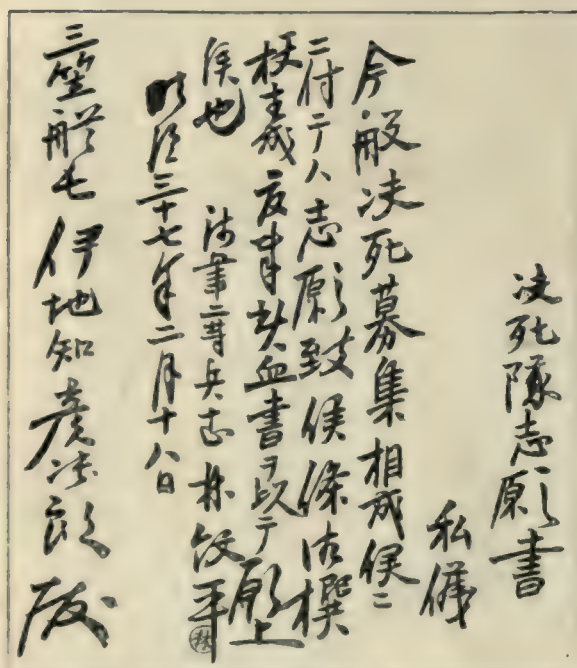 決死隊志願書
私儀
今般決死募集相成候ニ
ニ付テハ志願致候條御撰
抜主成度事熱血書ヲ以テ願上
候也 信筆二等兵 林紋平
明治三十七年二月十八日
三笠艦長 伊地知彦次郎殿